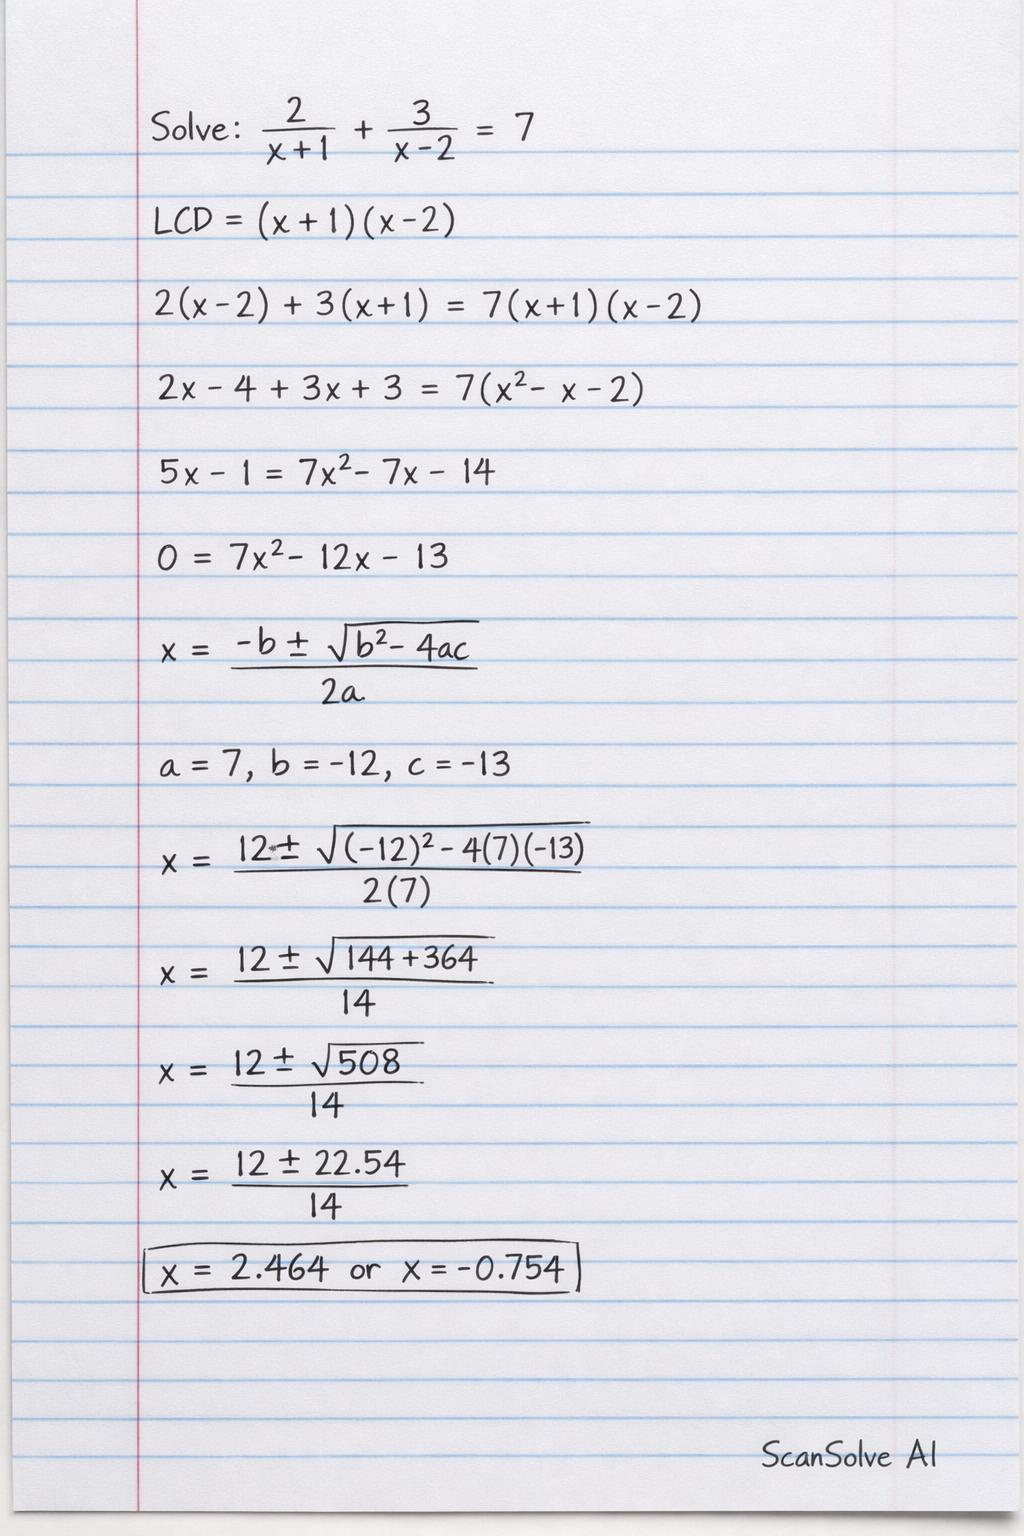 Solve: 2/(x+1) + 3/(x-2) = 7
LCD = (x+1)(x-2)
2(x-2) + 3(x+1) = 7(x+1)(x-2)
2x - 4 + 3x + 3 = 7(x² - x - 2)
5x - 1 = 7x² - 7x - 14
0 = 7x² - 12x - 13
x = (-b ± √(b² - 4ac))/(2a)
a = 7, b = -12, c = -13
x = (12 ± √((-12)² - 4(7)(-13)))/(2(7))
x = (12 ± √(144 + 364))/14
x = (12 ± √508)/14
x = (12 ± 22.54)/14
x = 2.464 or x = -0.754
ScanSolve AI